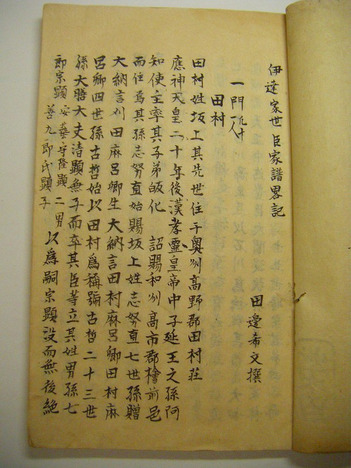 伊達家世臣家譜畧記
田邊希文撰
一門 凡十一人
田村
田村姓坂上其先世住于奥州高野郡田村荘
應神天皇二十年後漢孝靈皇帝中子延王文孫阿
知使主率其子弟皈化 詔賜和州高市郡檜前邑
而住焉其孫志努直始賜坂上姓志努直七世孫贈
大納言刈田麻呂卿生大納言田村麻呂卿田村麻
呂卿四世孫古哲始以田村為稱号古哲二十三世
孫大膳大夫清顯無子而卒其臣等立其姓男孫七
郎宗顯 安藝守隆顯二男善九郎氏顯子 以為嗣宗顯没而無後絶